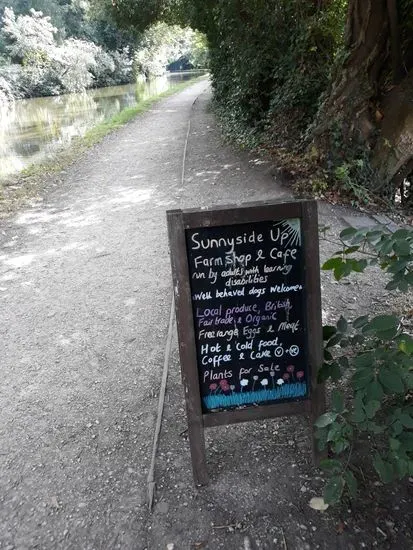 Sunnyside Up
Farmshop & Cafe
run by adults with learning
disabilities
Well behaved dogs welcome
Local produce, British,
Fair trade & Organic
Free range Eggs & Meat
Hot & Cold food,
Coffee & Cake V + VE
Plants for sale